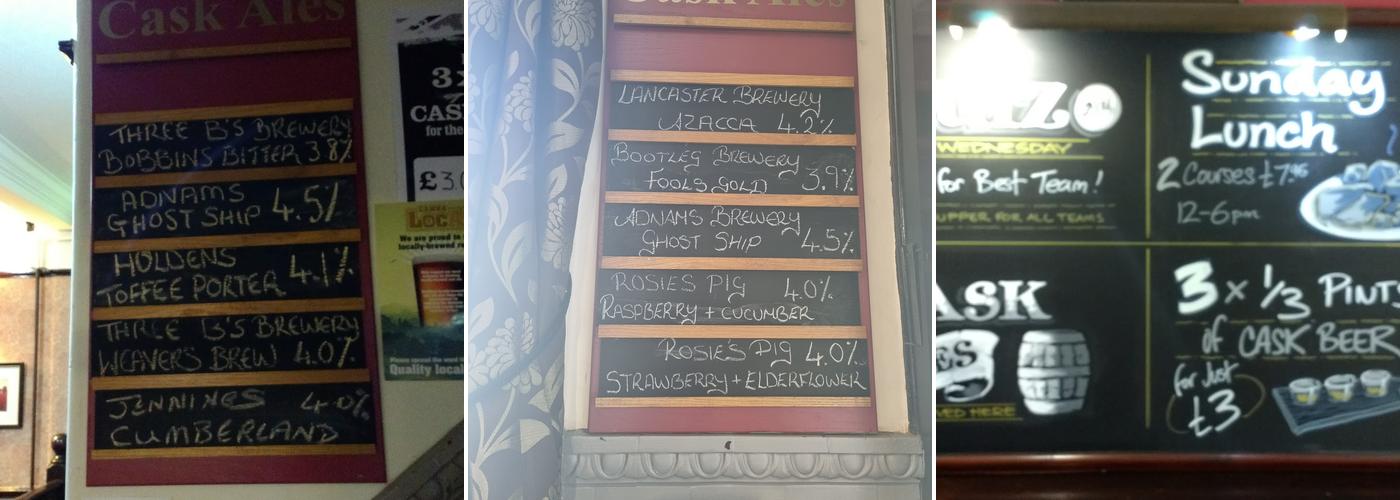 Cask Ales
THREE B'S BREWERY
BOBBINS BITTER 3.8%
ADNAMS
GHOST SHIP 4.5%
HOLDENS
TOFFEE PORTER 4.1%
THREE B'S BREWERY
WEAVERS BREW 4.0%
JENNINGS 4.0%
CUMBERLAND
3x
for the
£3.0
We are proud to
locally-brewed
Please spread the word
Quality local
Cask Ales
LANCASTER BREWERY
AZACCA 4.2%
BOOTLEG BREWERY
FOOLS GOLD 3.9%
ADNAMS BREWERY
GHOST SHIP 4.5%
ROSIES PIG 4.0%
RASPBERRY + CUCUMBER
ROSIE'S PIG 4.0%
STRAWBERRY + ELDERFLOWER
WEDNESDAY
for Best Team!
UPPER FOR ALL TEAMS
ASK
ES
VED HERE
Sunday
Lunch
2 Courses £7.95
12-6pm
3 x 1/3 PINT
of CASK BEER
for Just
£3